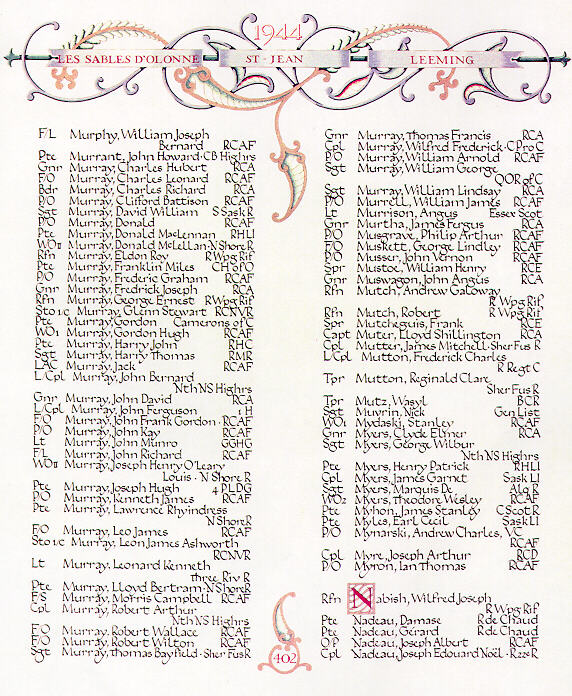 1944
LES SABLES D'OLONNE
ST-JEAN
LEEMING
F/L Murphy, William Joseph
Bernard RCAF
Pte Murrant, John Howard·CB Highrs
Gnr Murray, Charles Hubert RCA
F/O Murray, Charles Leonard RCAF
Bdr Murray, Charles Richard RCA
P/O Murray, Clifford Battison RCAF
Sgt Murray, David William S Sask R
P/O Murray, Donald RCAF
Pte Murray, Donald MacLennan RHLI
WOII Murray, Donald McLellan·N Shore R
Rfn Murray, Eldon Roy R Wpg Rif
Pte Murray, Franklin Miles CH of O
P/O Murray, Frederic Graham RCAF
Gnr Murray, Fredrick Joseph RCA
Rfn Murray, George Ernest R Wpg Rif
Sto 1/C Murray, Glenn Stewart RCNVR
Pte Murray, Gordon Camerons of C
WO1 Murray, Gordon Hugh RCAF
Pte Murray, Harry John RHC
Sgt Murray, Harry Thomas RMR
LAC Murray, Jack RCAF
L/Cpl Murray, John Bernard
Nth NS Highrs
Gnr Murray, John David RCA
L/Cpl Murray, John Ferguson 1 H
F/O Murray, John Frank Gordon·RCAF
P/O Murray, John Kay RCAF
Lt Murray, John Munro GGHG
F/L Murray, John Richard RCAF
WOII Murray, Joseph Henry O'Leary
Louis·N Shore R
Pte Murray, Joseph Hugh 4 PLDG
P/O Murray, Kenneth James RCAF
Pte Murray, Lawrence Rhyindress
N Shore R
F/O Murray, Leo James RCAF
Sto 1/C Murray, Leon James Ashworth
RCNVR
Lt Murray, Leonard Kenneth
Three Riv R
Pte Murray, Lloyd Bertram·N Shore R
F/S Murray, Morris Campbell RCAF
Cpl Murray, Robert Arthur
Nth NS Highrs
F/O Murray, Robert Wallace RCAF
F/O Murray, Robert Wilton RCAF
Sgt Murray, Thomas Bayfield·Sher Fus R
Gnr Murray, Thomas Francis RCA
Cpl Murray, Wilfred Frederick·C Pro C
P/O Murray, William Arnold RCAF
Sgt Murray, William George
QOR of C
Sgt Murray, William Lindsay RCA
P/O Murrell, William James RCAF
Lt Murrison, Angus Essex Scot
Gnr Murtha, James Fergus RCA
P/O Musgrave, Philip Arthur RCAF
F/O Muskett, George Lindley RCAF
P/O Musser, John Vernon RCAF
Spr Mustoe, William Henry RCE
Gnr Muswagon, John Angus RCA
Rfn Mutch, Andrew Galoway
R Wpg Rif
Rfn Mutch, Robert R Wpg Rif
Spr Mutcheguis, Frank RCE
Capt Muter, Lloyd Shillington RCA
Cpl Mutter, James Mitchell·Sher Fus R
L/Cpl Mutton, Frederick Charles
R Regt C
Tpr Mutton, Reginald Clare
Sher Fus R
Tpr Mutz, Wasyl BCR
Sgt Muvrin, Nick Gen List
WO1 Mydaski, Stanley RCAF
Gnr Myers, Clyde Elmer RCA
Sgt Myers, George Wilbur
Nth NS Highrs
Pte Myers, Henry Patrick RHLI
Cpl Myers, James Garnet Sask LI
Sgt Myers, Marquis De Alq R
WO2 Myers, Theodore Wesley RCAF
Pte Myhon, James Stanley C Scot R
Pte Myles, Earl Cecil Sask LI
P/O Mynarski, Andrew Charles, VC
RCAF
Cpl Myre, Joseph Arthur RCD
P/O Myron, Ian Thomas RCAF
Rfn Nabish, Wilfred Joseph
R Wpg Rif
Pte Nadeau, Damase R de Chaud
Pte Nadeau, Gérard R de Chaud
O/P Nadeau, Joseph Albert RCAF
Cpl Nadeau, Joseph Edouard Noël·R22eR
402